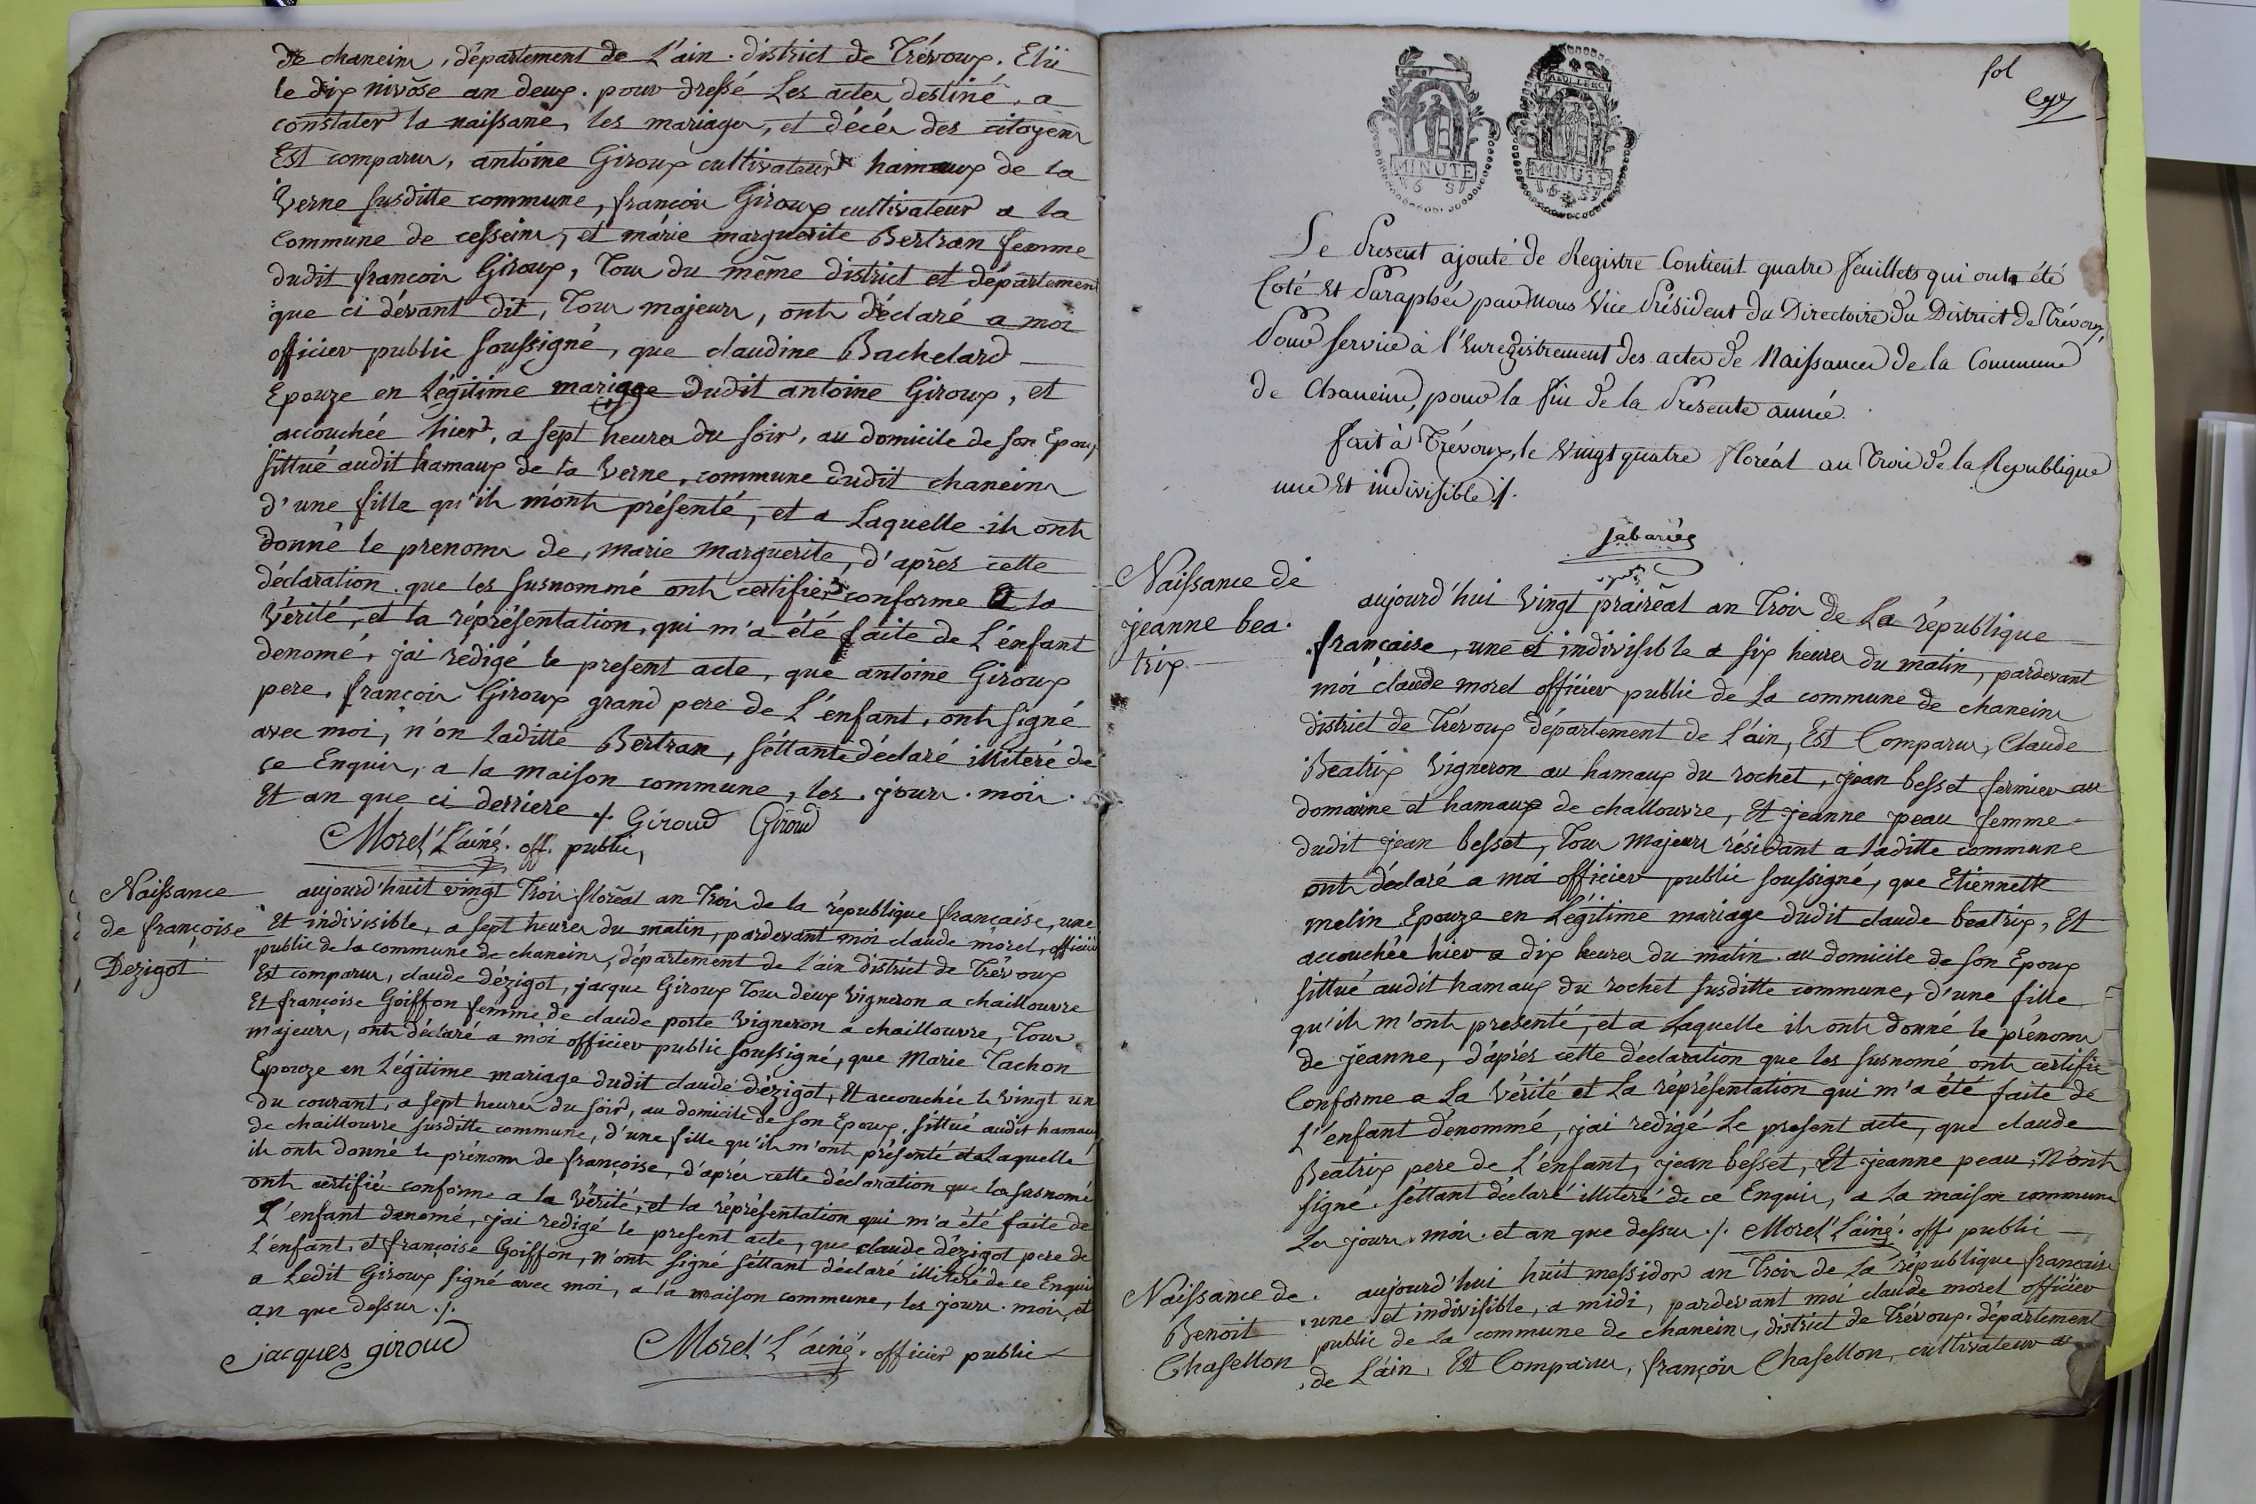 de chaneins, département de L'ain. district de Trévoux. Elü
le dix nivôse an deux. pour dressé Les actes destiné, a
constater la naissane, les mariages, et décés des citoyens
Est comparus, antoine Giroux cultivateur hamaux de la
Verne susditte commune, françois Giroux cultivateur a la
Commune de cesseins, et marie marguerite Bertran femme
dudit françois Giroux, Tous du même district et département
que ci dévant dit, Tous majeurs, onts déclaré a moi
officier public soussigné, que claudine Bachelard
Epouze en Légitime mariage dudit antoine Giroux, et
accouchée hier, a sept heures du soir, au domicile de son Epoux,
sittué audit hamaux de la Verne, commune dudit chaneins
d'une fille qu'ils m'onts présenté, et a Laquelle ils onts
donné le prenoms de, marie marguerite, d'aprés cette
déclaration que les susnommé onts certifier conforme a la
Vérité, et la réprésentation, qui m'a été faite de L'énfant
denomé, jai redigé le present acte, que antoine Giroux
pere, françois Giroux grand pere de L'enfant, onts signé
avec moi, n'on Laditte Bertran, séttants déclaré illiteré de
ce Enquis, a la maison commune, les jours. mois.
Et an que ci derriere ./. Giroud Giroud
Morel L'ainé. off. public,
Naissance
de françoise
Dezigot
aujourd'huit vingt Trois floréal an Trois de la république française, une
Et indivisible, a sept heures du matin, pardevant moi claude morel, officier
public de la commune de chaneins, département de L'ain district de Trévoux
Est comparus, claude dézigot, jacque Giroux Tous deux Vigneron a chaillouvre
Et françoise Goiffon femme de claude porte Vigneron a chaillouvre, Tous
majeurs, onts déclaré a moi officier public soussigné, que Marie Tachon
Epouze en Légitime mariage dudit claude dézigot, Et accouchée le vingt un
du courant, a sept heures du soir, au domicile de son Epoux, sittué audit hamaux
de chaillouvre susditte commune, d'une fille qu'ils m'onts présenté et a Laquelle
ils onts donné le prénoms de françoise, d'aprés cette déclaration que les susnomé
onts certifié conforme a la Vérité, et la réprésentation qui m'a été faite de
L'enfant denomé, jai redigé le present acte, que claude dézigot pere de
L'énfant, et françoise Goiffon, n'onts signé séttant déclaré illiteré de ce Enquis
a Ledit Giroux signé avec moi, a la maison commune, les jours. mois, et
an que dessus ./.
jacques giroud
Morel L'ainé. officier public
fol
MINUTE
6 S
MINUTE
6 S
Le Present ajouté de Registre Contient quatre feuillets qui onts été
Coté et Paraphés par Nous Vice Président du Directoire du District de Trévoux,
Pour servir à l'Enregistrement des actes de Naissances de la Commune
de Chaneins, pour la fin de la Presente année.
fait à Trévoux, le Vingt quatre floréal an Trois de la Republique
une et indivisible ./.
Naissance de
jeanne bea.
trix.
aujourd'hui Vingt prairéal an Trois de La république
française, une et indivisible a six heures du matin, pardevant
moi claude morel officier public de La commune de chaneins
district de Trévoux département de L'ain, Est Comparus, Claude
Beatrix Vigneron au hamaux du rochet, jean besset fermier au
domaine et hamaux de challouvre, Et jeanne peau femme
dudit jean besset, Tous Majeurs résidant a Laditte commune
onts déclaré a moi officier public soussigné, que Etiennette
melin Epouze en Légitime mariage dudit claude beatrix, Et
accouchée hier a dix heures du matin. au domicile de son Epoux
sittué audit hamaux du rochet susditte commune, d'une fille
qu'ils m'onts presenté, et a Laquelle ils onts donné le prénoms
de jeanne, d'aprés cette déclaration que les susnomé onts certifie
Conforme a La Vérité et La réprésentation qui m'a été faite de
L'enfant dénommé, jai redigé Le present acte, que claude
Beatrix pere de L'enfant, jean besset, Et jeanne peau, N'onts
signé. séttant déclaré illiteré de ce Enquis, a La maison commune
Les jours. mois. et an que dessus ./. Morel L'ainé. off. public
Naissance de
Benoit
Chasellon
aujourd'hui huit messidor an Trois de La république française
une et indivisible, a midi, pardevant moi claude morel officier
public de La commune de chaneins, district de Trévoux. département
de L'ain, Est Comparus, françois Chasellon, cultivateur a